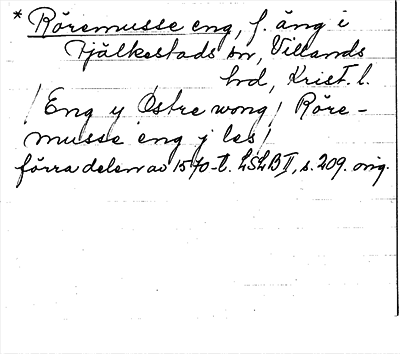 * Röremusse eng, f. äng i
Fjälkestads sn, Villands
hd, Krist. l.
/Eng y Østre wong/ Röre-
musse eng j les/
förra delen av 1570-t. LSLB II, s. 209. orig.